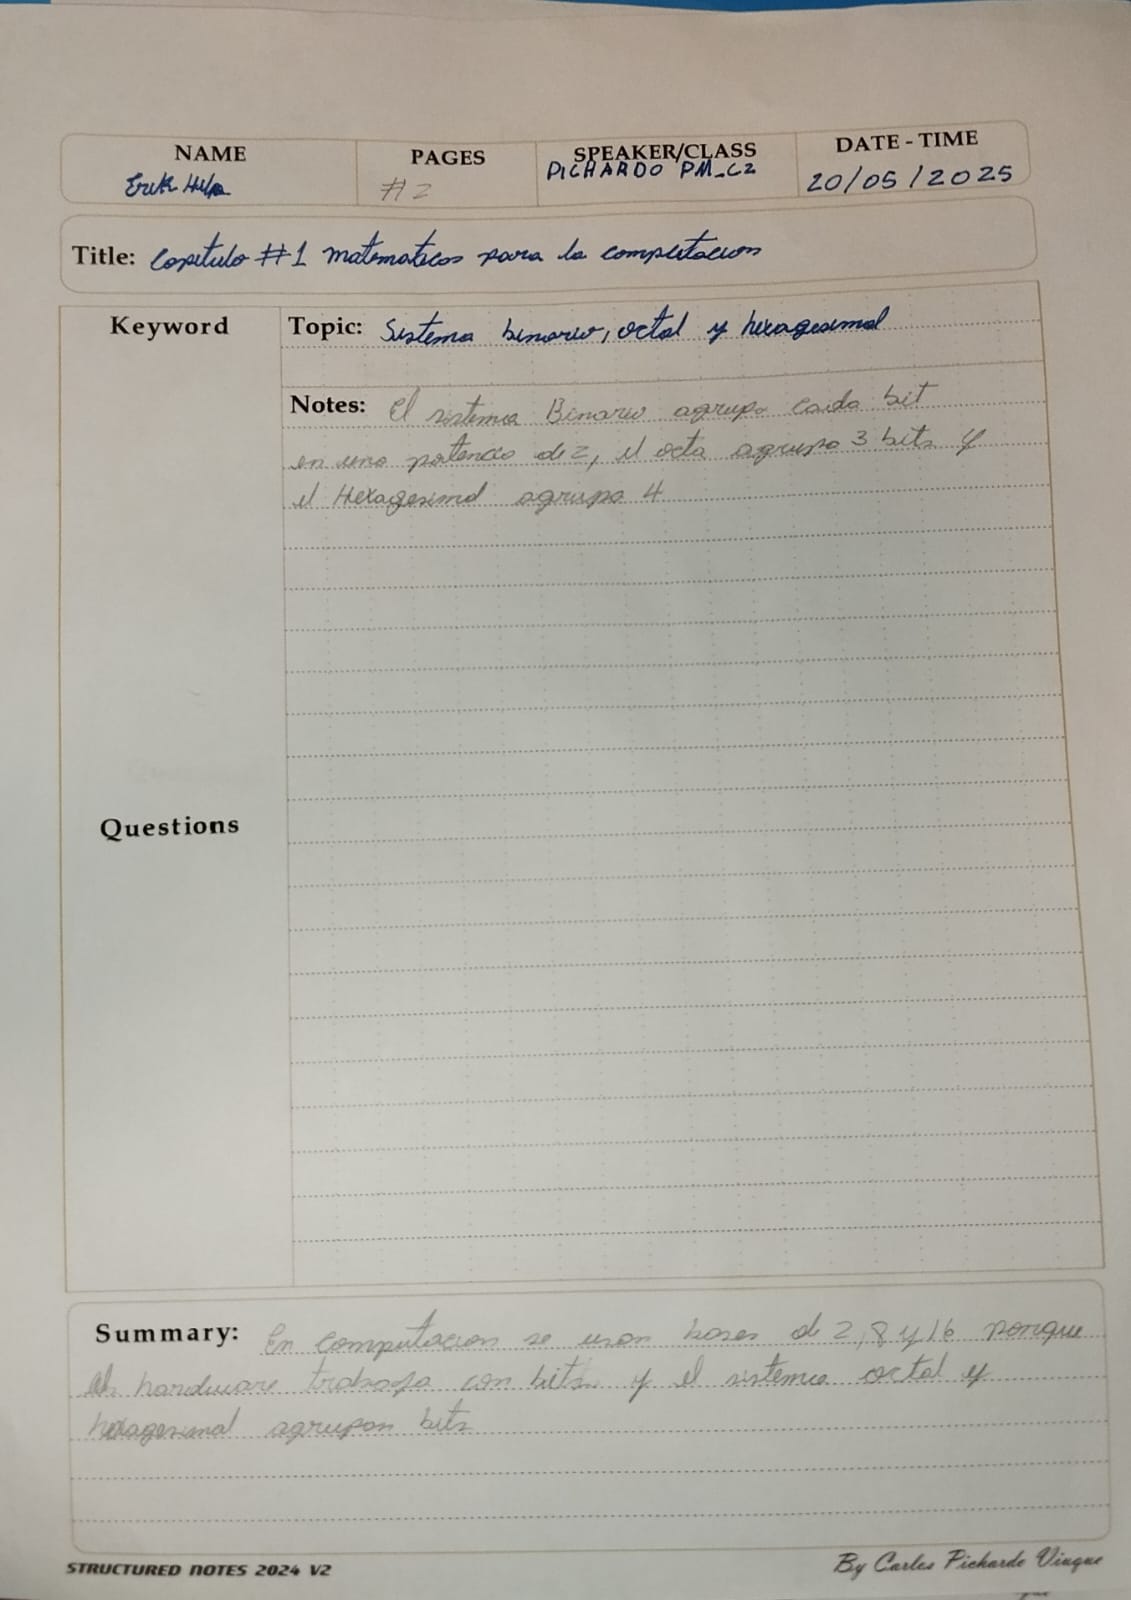 NAME
PAGES
SPEAKER/CLASS
DATE - TIME
Erik
#2
PICHARDO PM_C2
20/05/2025
Title: Capitulo #1 matematicas para la computacion
Keyword
Topic: Sistema binario, octal y hexagesimal
Notes: El sistema Binario agrupa cada bit
en una potencia de 2, el octa agrupa 3 bits y
el Hexagesimal agrupa 4
Questions
Summary: En computacion se usan bases de 2, 8 y 16 porque
el hardware trabaja con bits y el sistema octal y
hexagesimal agrupan bits
STRUCTURED NOTES 2024 V2
By Carlos Pichardo Viuque